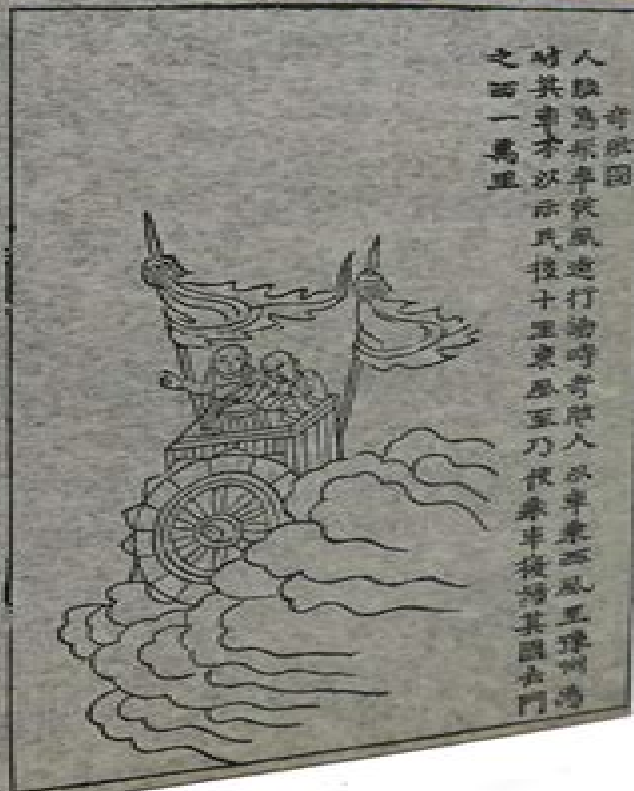 奇肱國
人能為飛車從風遠行湯時奇肱人以車乘西風至豫州湯
破其車不以示民後十里東風至乃復乘車復歸其國去門
之西一萬里